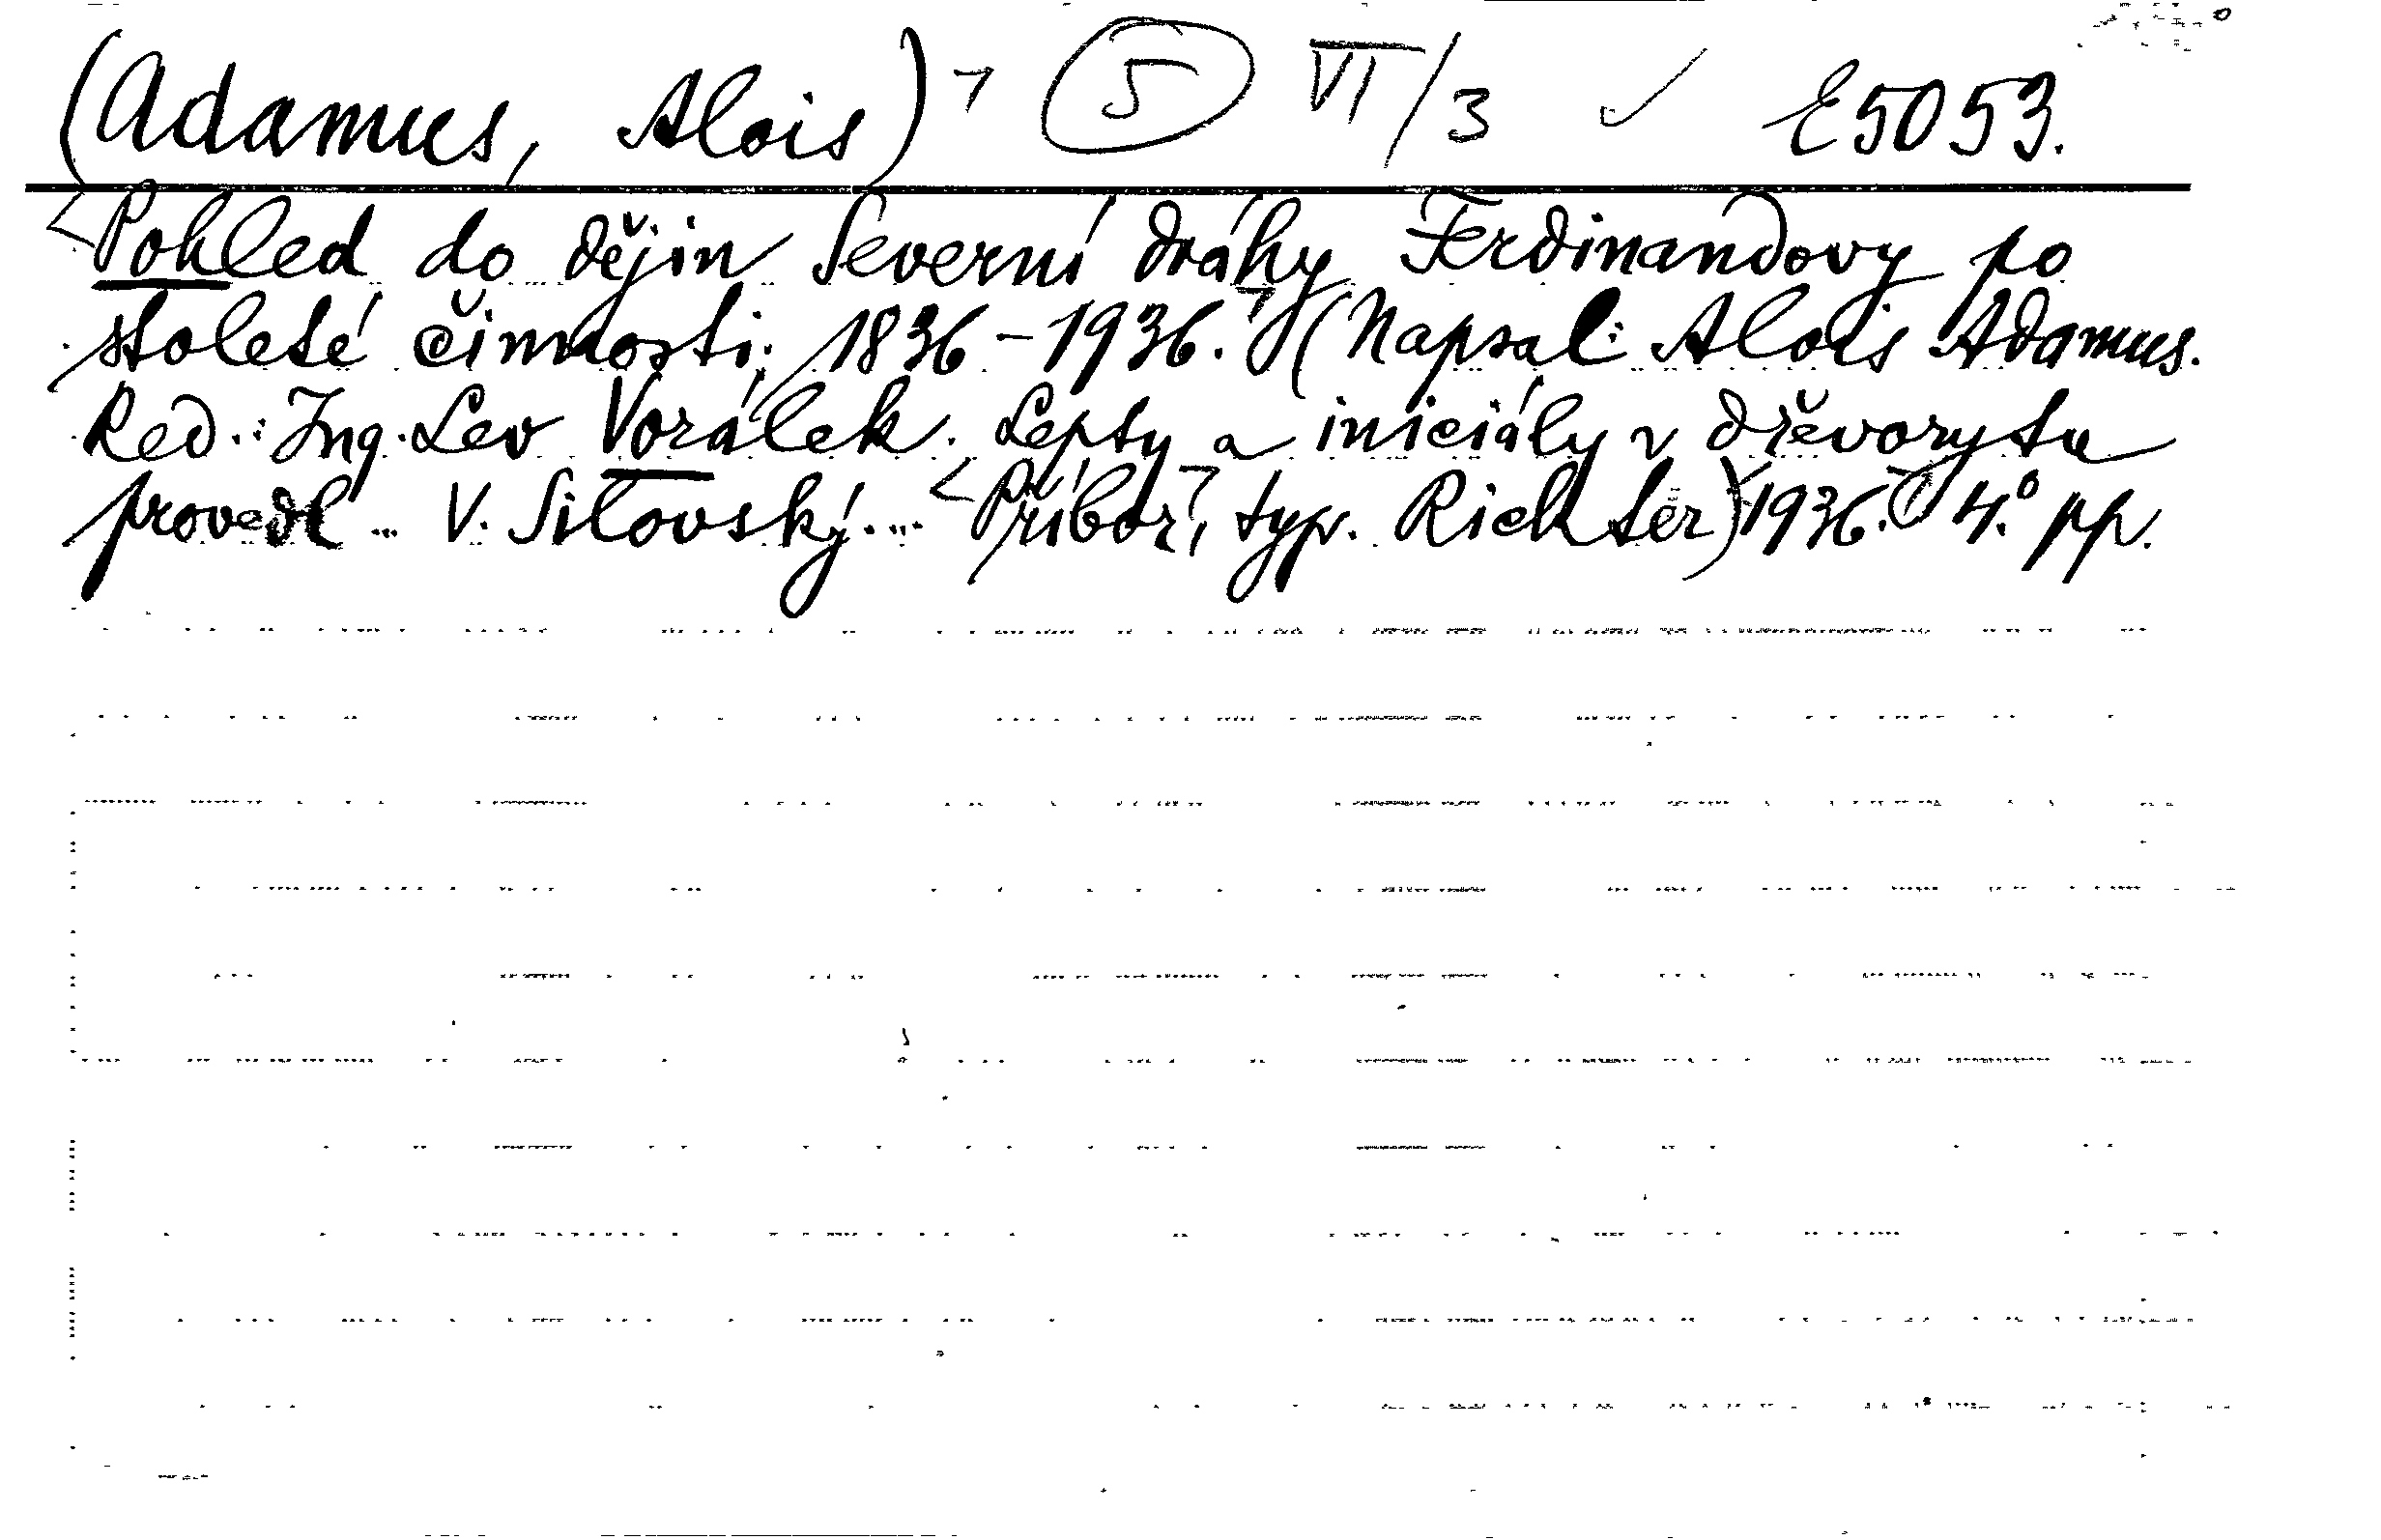 (Adamus, Alois) ⌝ 5 VI/3 ✓ E 5053.
<Pohled do dějin Severní dráhy Ferdinandovy po
stoleté činnosti: 1836-1936.⌝ (Napsal: Alois Adamus.
Red.: Ing. Lev Vorálek. Lepty a iniciály v dřevorytu
provedl ... V. Silovský. ... <Příbor⌝, typ. Richter) 1936.⌝ 4.° pp.